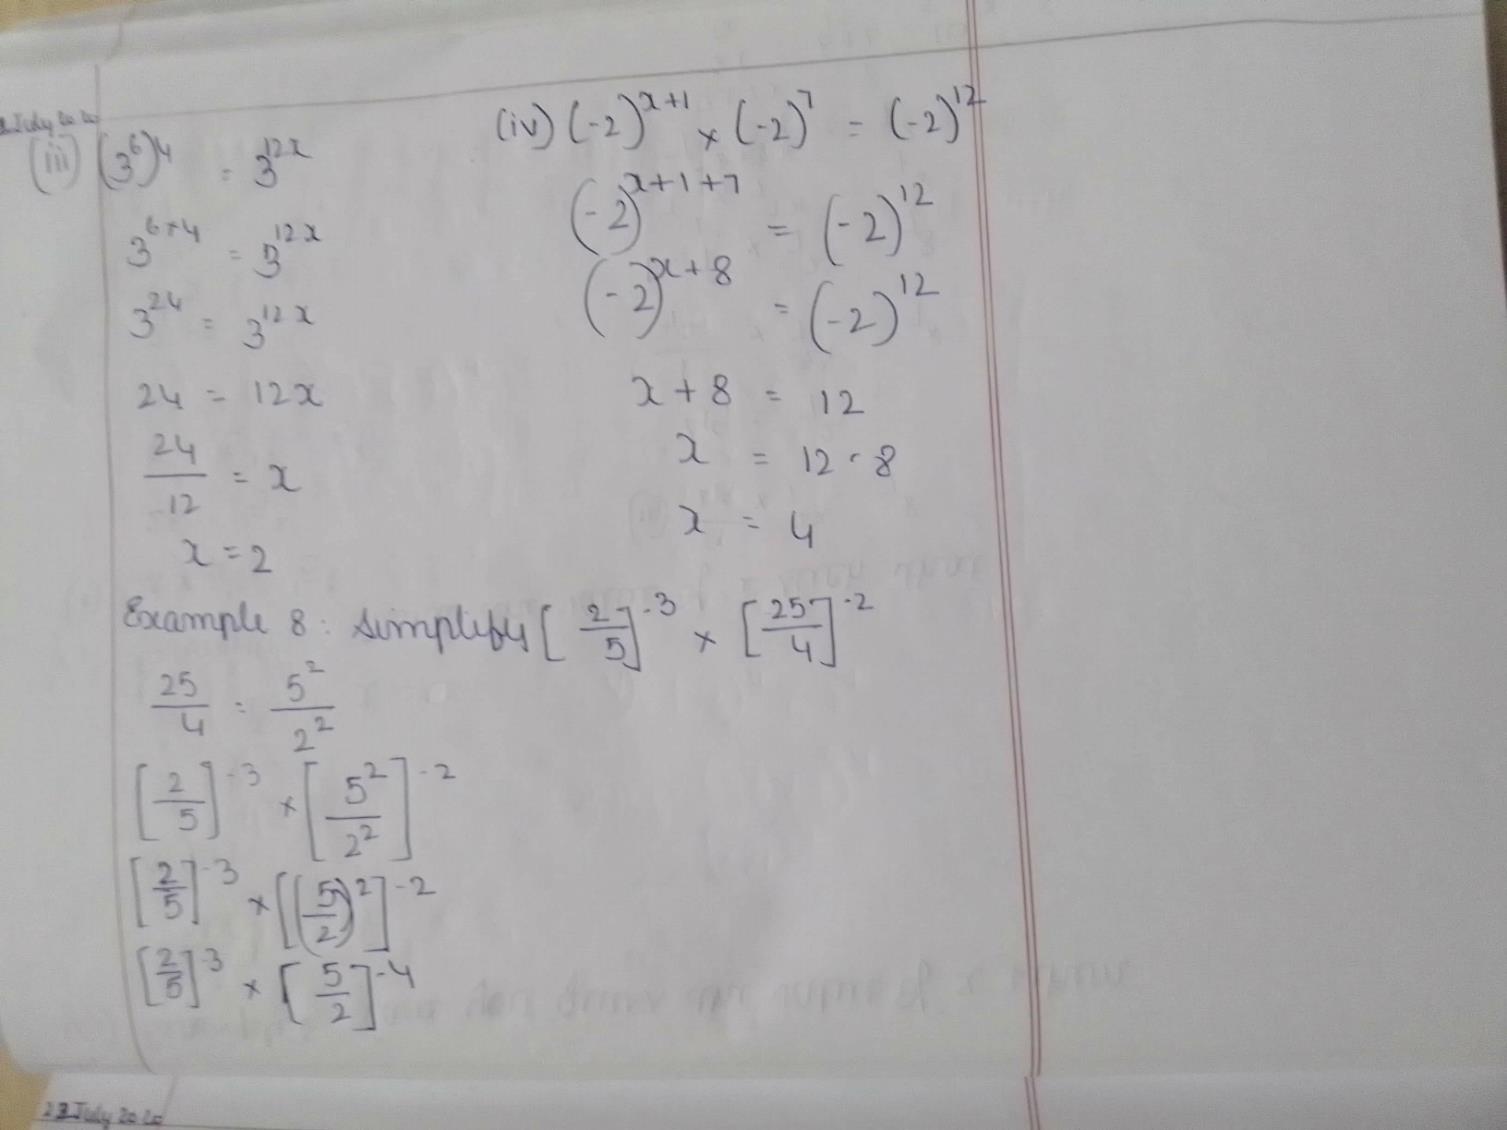 July 2020
(iii) (3⁶)⁴ = 3¹²ˣ
3⁶ˣ⁴ = 3¹²ˣ
3²⁴ = 3¹²ˣ
24 = 12x
24/12 = x
x = 2
(iv) (-2)ˣ⁺¹ × (-2)⁷ = (-2)¹²
(-2)ˣ⁺¹⁺⁷ = (-2)¹²
(-2)ˣ⁺⁸ = (-2)¹²
x + 8 = 12
x = 12 - 8
x = 4
Example 8: Simplify [2/5]⁻³ × [25/4]⁻²
25/4 = 5²/2²
[2/5]⁻³ × [5²/2²]⁻²
[2/5]⁻³ × [(5/2)²]⁻²
[2/5]⁻³ × [5/2]⁻⁴
23 July 2020